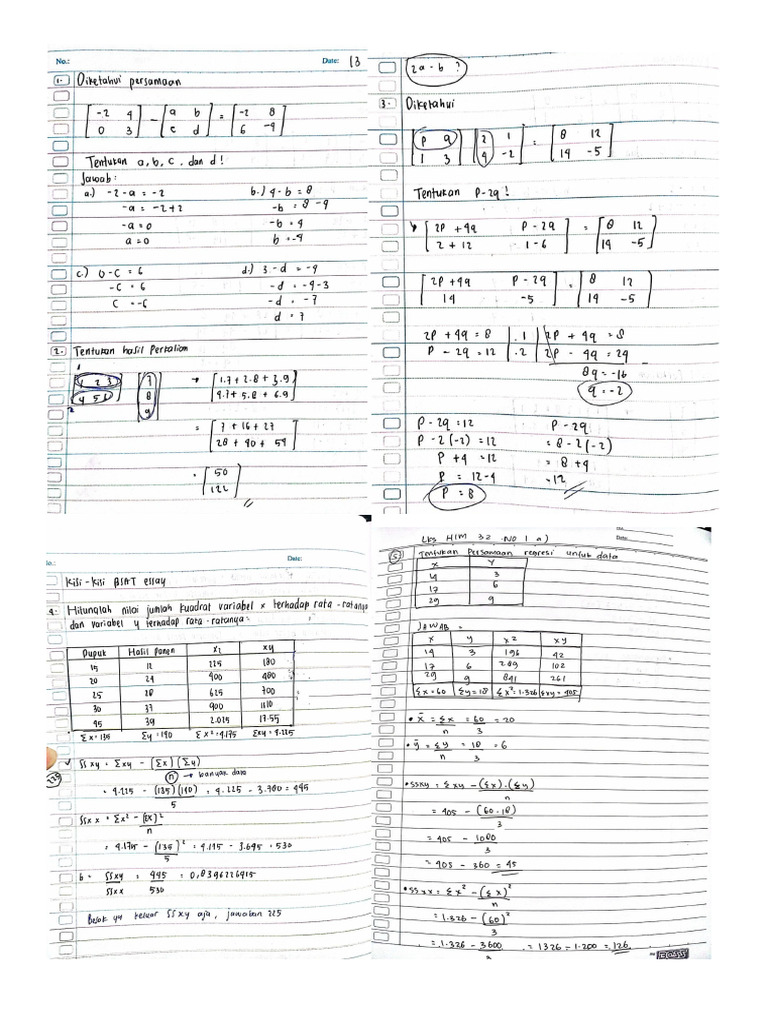 No.:
Date: 13
1. Diketahui persamaan
[-2 4; 0 3] - [a b; c d] = [-2 8; 6 -4]
Tentukan a, b, c, dan d!
Jawab:
a.) -2-a = -2
-a = -2+2
-a = 0
a = 0
b.) 4-b = 8
-b = 8-4
-b = 4
b = -4
c.) 0-c = 6
-c = 6
c = -6
d.) 3-d = -4
-d = -4-3
-d = -7
d = 7
2. Tentukan hasil Perkalian
[1 2 3; 4 5 6] [7; 8; 9] → [1.7+2.8+3.9; 4.7+5.8+6.9]
= [7+16+27; 28+40+54]
= [50; 122]
2a-b ?
3. Diketahui
[p q; 1 3] [2 1; 4 -2] = [8 12; 14 -5]
Tentukan P-2q!
[2P+4q P-2q; 2+12 1-6] = [8 12; 14 -5]
[2P+4q P-2q; 14 -5] = [8 12; 14 -5]
2P+4q = 8 | .1 | 2P+4q = 8
P-2q = 12 | .2 | 2P-4q = 24
8q = -16
q = -2
P-2q = 12
P-2(-2) = 12
P+4 = 12
P = 12-4
P = 8
P-2q
= 8-2(-2)
= 8+4
= 12
No.:
Date:
Kisi-kisi BSAJT essay
4. Hitunglah nilai jumlah kuadrat variabel x terhadap rata-ratanya
dan variabel y terhadap rata-ratanya:
Pupuk Hasil panen x2 xy
15 12 225 180
20 24 400 480
25 28 625 700
30 37 900 1110
45 39 2.025 17.55
Σx=135 Σy=140 Σx²=4.175 Σxy=4.225
SSxy = Σxy - (Σx)(Σy)
n → banyak data
= 4.225 - (135)(140) = 4.225 - 3.780 = 445
5
SSxx = Σx² - (Σx)²
n
= 4.175 - (135)² = 4.175 - 3.645 = 530
5
b = SSxy = 445 = 0,8396226415
SSxx 530
Besok yg keluar SSxy aja, jawaban 225
LKS HLM 32 NO 1 a)
5 Tentukan Persamaan regresi untuk data
x y
14 3
17 6
29 9
JAWAB =
x y x2 xy
14 3 196 42
17 6 289 102
29 9 841 261
Σx=60 Σy=18 Σx²=1.326 Σxy=405
• x̄ = Σx = 60 = 20
n 3
• ȳ = Σy = 18 = 6
n 3
• SSxy = Σxy - (Σx).(Σy)
n
= 405 - (60.18)
3
= 405 - 1080
3
= 405 - 360 = 45
• SSxx = Σx² - (Σx)²
n
= 1.326 - (60)²
3
= 1.326 - 3600 = 1326 - 1.200 = 126
BOSS